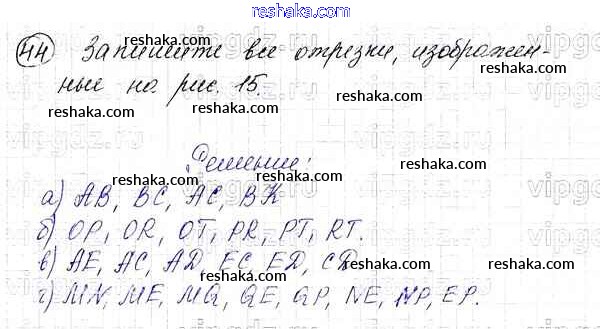 reshaka.com
44 Запишите все отрезки, изображен-
reshaka.com
ные на рис. 15.
reshaka.com
Решение:
reshaka.com
а) AB, BC, AC, BK
reshaka.com
б) OP, OR, OT, PR, PT, RT.
reshaka.com
в) AE, AC, AD, EC, ED, CD
reshaka.com
г) MN, ME, MQ, QE, QP, NE, NP, EP.
reshaka.com